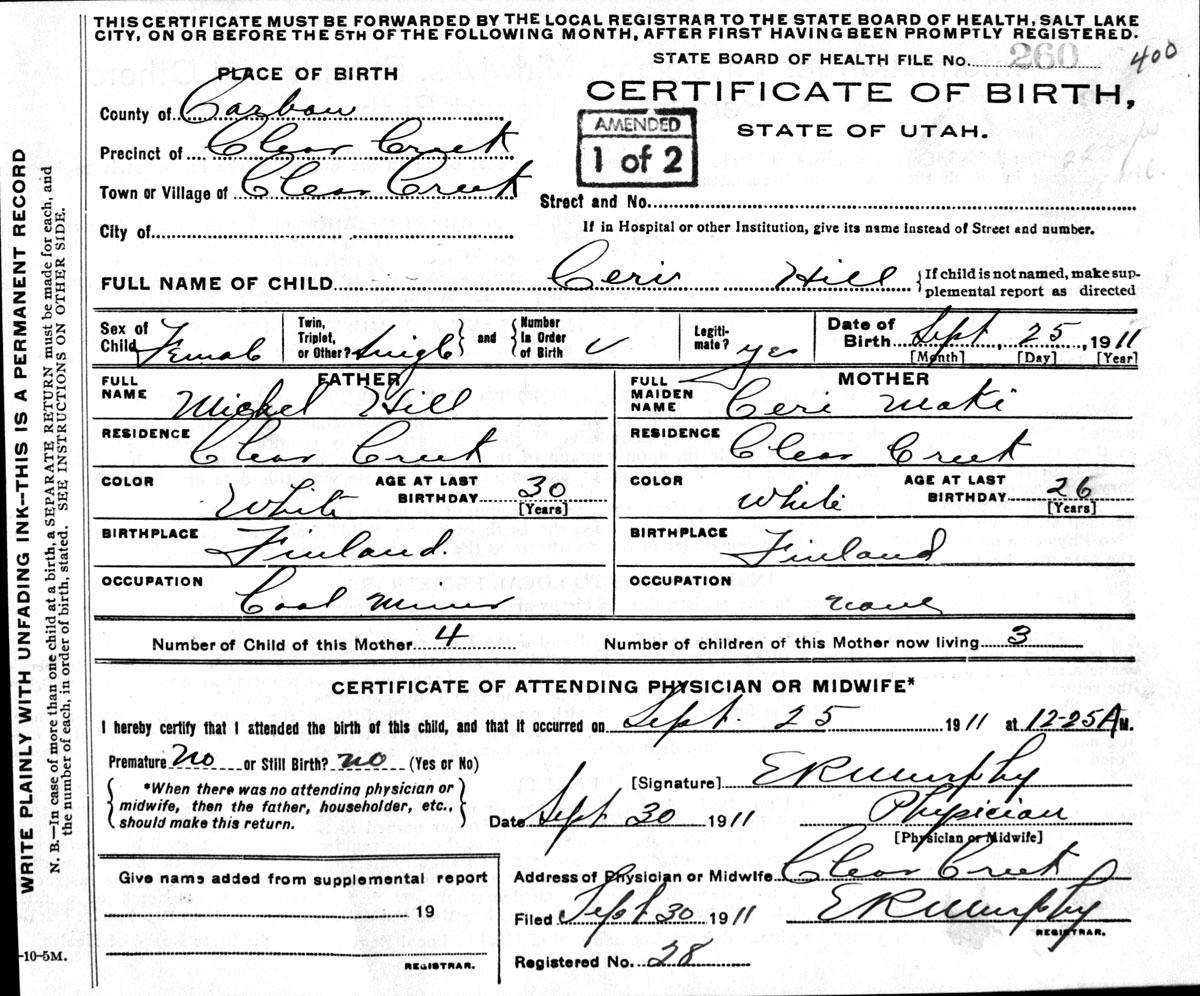 THIS CERTIFICATE MUST BE FORWARDED BY THE LOCAL REGISTRAR TO THE STATE BOARD OF HEALTH, SALT LAKE
CITY, ON OR BEFORE THE 5TH OF THE FOLLOWING MONTH, AFTER FIRST HAVING BEEN PROMPTLY REGISTERED.
STATE BOARD OF HEALTH FILE No. 260 400
PLACE OF BIRTH
CERTIFICATE OF BIRTH,
STATE OF UTAH.
AMENDED
1 of 2
County of Carbon
Precinct of Clear Creek
Town or Village of Clear Creek
Street and No.
City of
If in Hospital or other Institution, give its name instead of Street and number.
FULL NAME OF CHILD Ceri Hill {If child is not named, make sup-
plemental report as directed
Sex of Child Female
Twin, Triplet, or Other? Single } and { Number In Order of Birth
Legiti-mate? yes
Date of Birth Sept. 25, 1911
[Month] [Day] [Year]
FATHER
FULL NAME Michel Hill
RESIDENCE Clear Creek
COLOR White AGE AT LAST BIRTHDAY 30 [Years]
BIRTHPLACE Finland.
OCCUPATION Coal Miner
MOTHER
FULL MAIDEN NAME Ceri Maki
RESIDENCE Clear Creek
COLOR White AGE AT LAST BIRTHDAY 26 [Years]
BIRTHPLACE Finland
OCCUPATION None
Number of Child of this Mother 4 Number of children of this Mother now living 3
CERTIFICATE OF ATTENDING PHYSICIAN OR MIDWIFE*
I hereby certify that I attended the birth of this child, and that it occurred on Sept. 25 1911 at 12-25 A M.
Premature No or Still Birth? no (Yes or No)
{ *When there was no attending physician or
midwife, then the father, householder, etc.,
should make this return. }
[Signature] E R Murphy
Date Sept 30 1911 Physician
[Physician or Midwife]
Give name added from supplemental report
19
REGISTRAR.
Address of Physician or Midwife Clear Creek
Filed Sept 30 1911 E R Murphy
REGISTRAR.
Registered No. 28
-10-5M.
WRITE PLAINLY WITH UNFADING INK—THIS IS A PERMANENT RECORD
N. B.—In case of more than one child at a birth, a SEPARATE RETURN must be made for each, and
the number of each, in order of birth, stated. SEE INSTRUCTIONS ON OTHER SIDE.